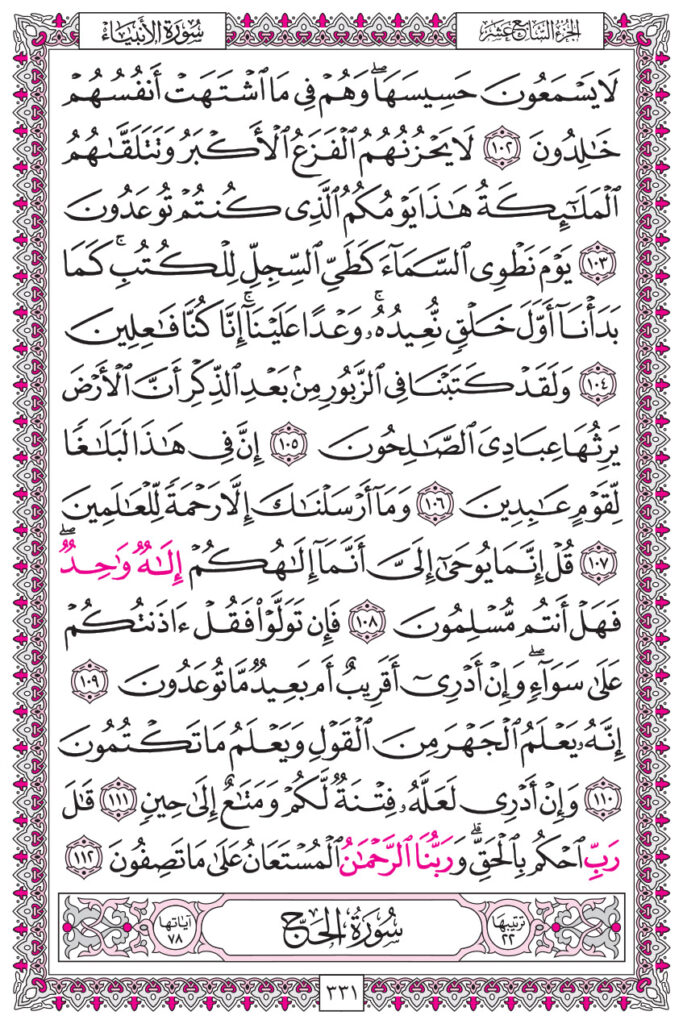 الجزء السابع عشر
سورة الأنبياء
لَا يَسْمَعُونَ حَسِيسَهَا ۖ وَهُمْ فِي مَا ٱشْتَهَتْ أَنفُسُهُمْ
خَـٰلِدُونَ ١٠٢ لَا يَحْزُنُهُمُ ٱلْفَزَعُ ٱلْأَكْبَرُ وَتَتَلَقَّـٰهُمُ
ٱلْمَلَـٰٓئِكَةُ هَـٰذَا يَوْمُكُمُ ٱلَّذِى كُنتُمْ تُوعَدُونَ
١٠٣ يَوْمَ نَطْوِى ٱلسَّمَآءَ كَطَىِّ ٱلسِّجِلِّ لِلْكُتُبِ ۚ كَمَا
بَدَأْنَآ أَوَّلَ خَلْقٍ نُّعِيدُهُۥ ۚ وَعْدًا عَلَيْنَآ ۚ إِنَّا كُنَّا فَـٰعِلِينَ
١٠٤ وَلَقَدْ كَتَبْنَا فِى ٱلزَّبُورِ مِنۢ بَعْدِ ٱلذِّكْرِ أَنَّ ٱلْأَرْضَ
يَرِثُهَا عِبَادِىَ ٱلصَّـٰلِحُونَ ١٠٥ إِنَّ فِى هَـٰذَا لَبَلَـٰغًا
لِّقَوْمٍ عَـٰبِدِينَ ١٠٦ وَمَآ أَرْسَلْنَـٰكَ إِلَّا رَحْمَةً لِّلْعَـٰلَمِينَ
١٠٧ قُلْ إِنَّمَا يُوحَىٰٓ إِلَىَّ أَنَّمَآ إِلَـٰهُكُمْ إِلَـٰهٌ وَٰحِدٌ ۖ
فَهَلْ أَنتُم مُّسْلِمُونَ ١٠٨ فَإِن تَوَلَّوْا۟ فَقُلْ ءَاذَنتُكُمْ
عَلَىٰ سَوَآءٍ ۖ وَإِنْ أَدْرِىٓ أَقَرِيبٌ أَم بَعِيدٌ مَّا تُوعَدُونَ ١٠٩
إِنَّهُۥ يَعْلَمُ ٱلْجَهْرَ مِنَ ٱلْقَوْلِ وَيَعْلَمُ مَا تَكْتُمُونَ
١١٠ وَإِنْ أَدْرِى لَعَلَّهُۥ فِتْنَةٌ لَّكُمْ وَمَتَـٰعٌ إِلَىٰ حِينٍ ١١١ قَـٰلَ
رَبِّ ٱحْكُم بِٱلْحَقِّ ۗ وَرَبُّنَا ٱلرَّحْمَـٰنُ ٱلْمُسْتَعَانُ عَلَىٰ مَا تَصِفُونَ ١١٢
ترتيبها
٢٢
سُورَةُ الحَجِّ
آياتها
٧٨
٣٣١